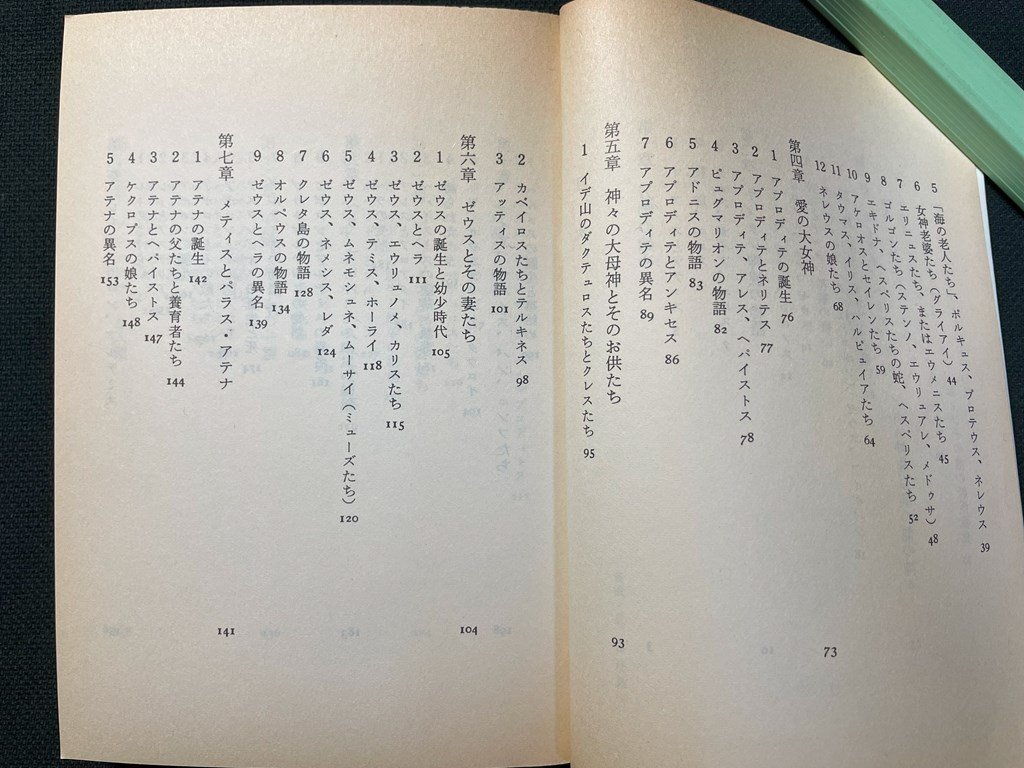 5 「海の老人たち」、ポルキュス、プロテウス、ネレウス 39
6 女神老婆たち(グライアイ) 44
7 エリニュスたち、またはエウメニスたち 45
8 ゴルゴンたち(ステンノ、エウリュアレ、メドゥサ) 48
9 エキドナ、ヘスペリスたちの蛇、ヘスペリスたち 52
10 アケロオスとセイレンたち 59
11 タウマス、イリス、ハルピュイアたち 64
12 ネレウスの娘たち 68
第四章 愛の大女神 73
1 アプロディテの誕生 76
2 アプロディテとネリテス 77
3 アプロディテ、アレス、ヘパイストス 78
4 ピュグマリオンの物語 82
5 アドニスの物語 83
6 アプロディテとアンキセス 86
7 アプロディテの異名 89
第五章 神々の大母神とそのお供たち 93
1 イデ山のダクテュロスたちとクレスたち 95
2 カベイロスたちとテルキネス 98
3 アッティスの物語 101
第六章 ゼウスとその妻たち 104
1 ゼウスの誕生と幼少時代 105
2 ゼウスとヘラ 111
3 ゼウス、エウリュノメ、カリスたち 115
4 ゼウス、テミス、ホーライ 118
5 ゼウス、ムネモシュネ、ムーサイ(ミューズたち) 120
6 ゼウス、ネメシス、レダ 124
7 クレタ島の物語 128
8 オルペウスの物語 134
9 ゼウスとヘラの異名 139
第七章 メティスとパラス・アテナ 141
1 アテナの誕生 142
2 アテナの父たちと養育者たち 144
3 アテナとヘパイストス 147
4 ケクロプスの娘たち 148
5 アテナの異名 153